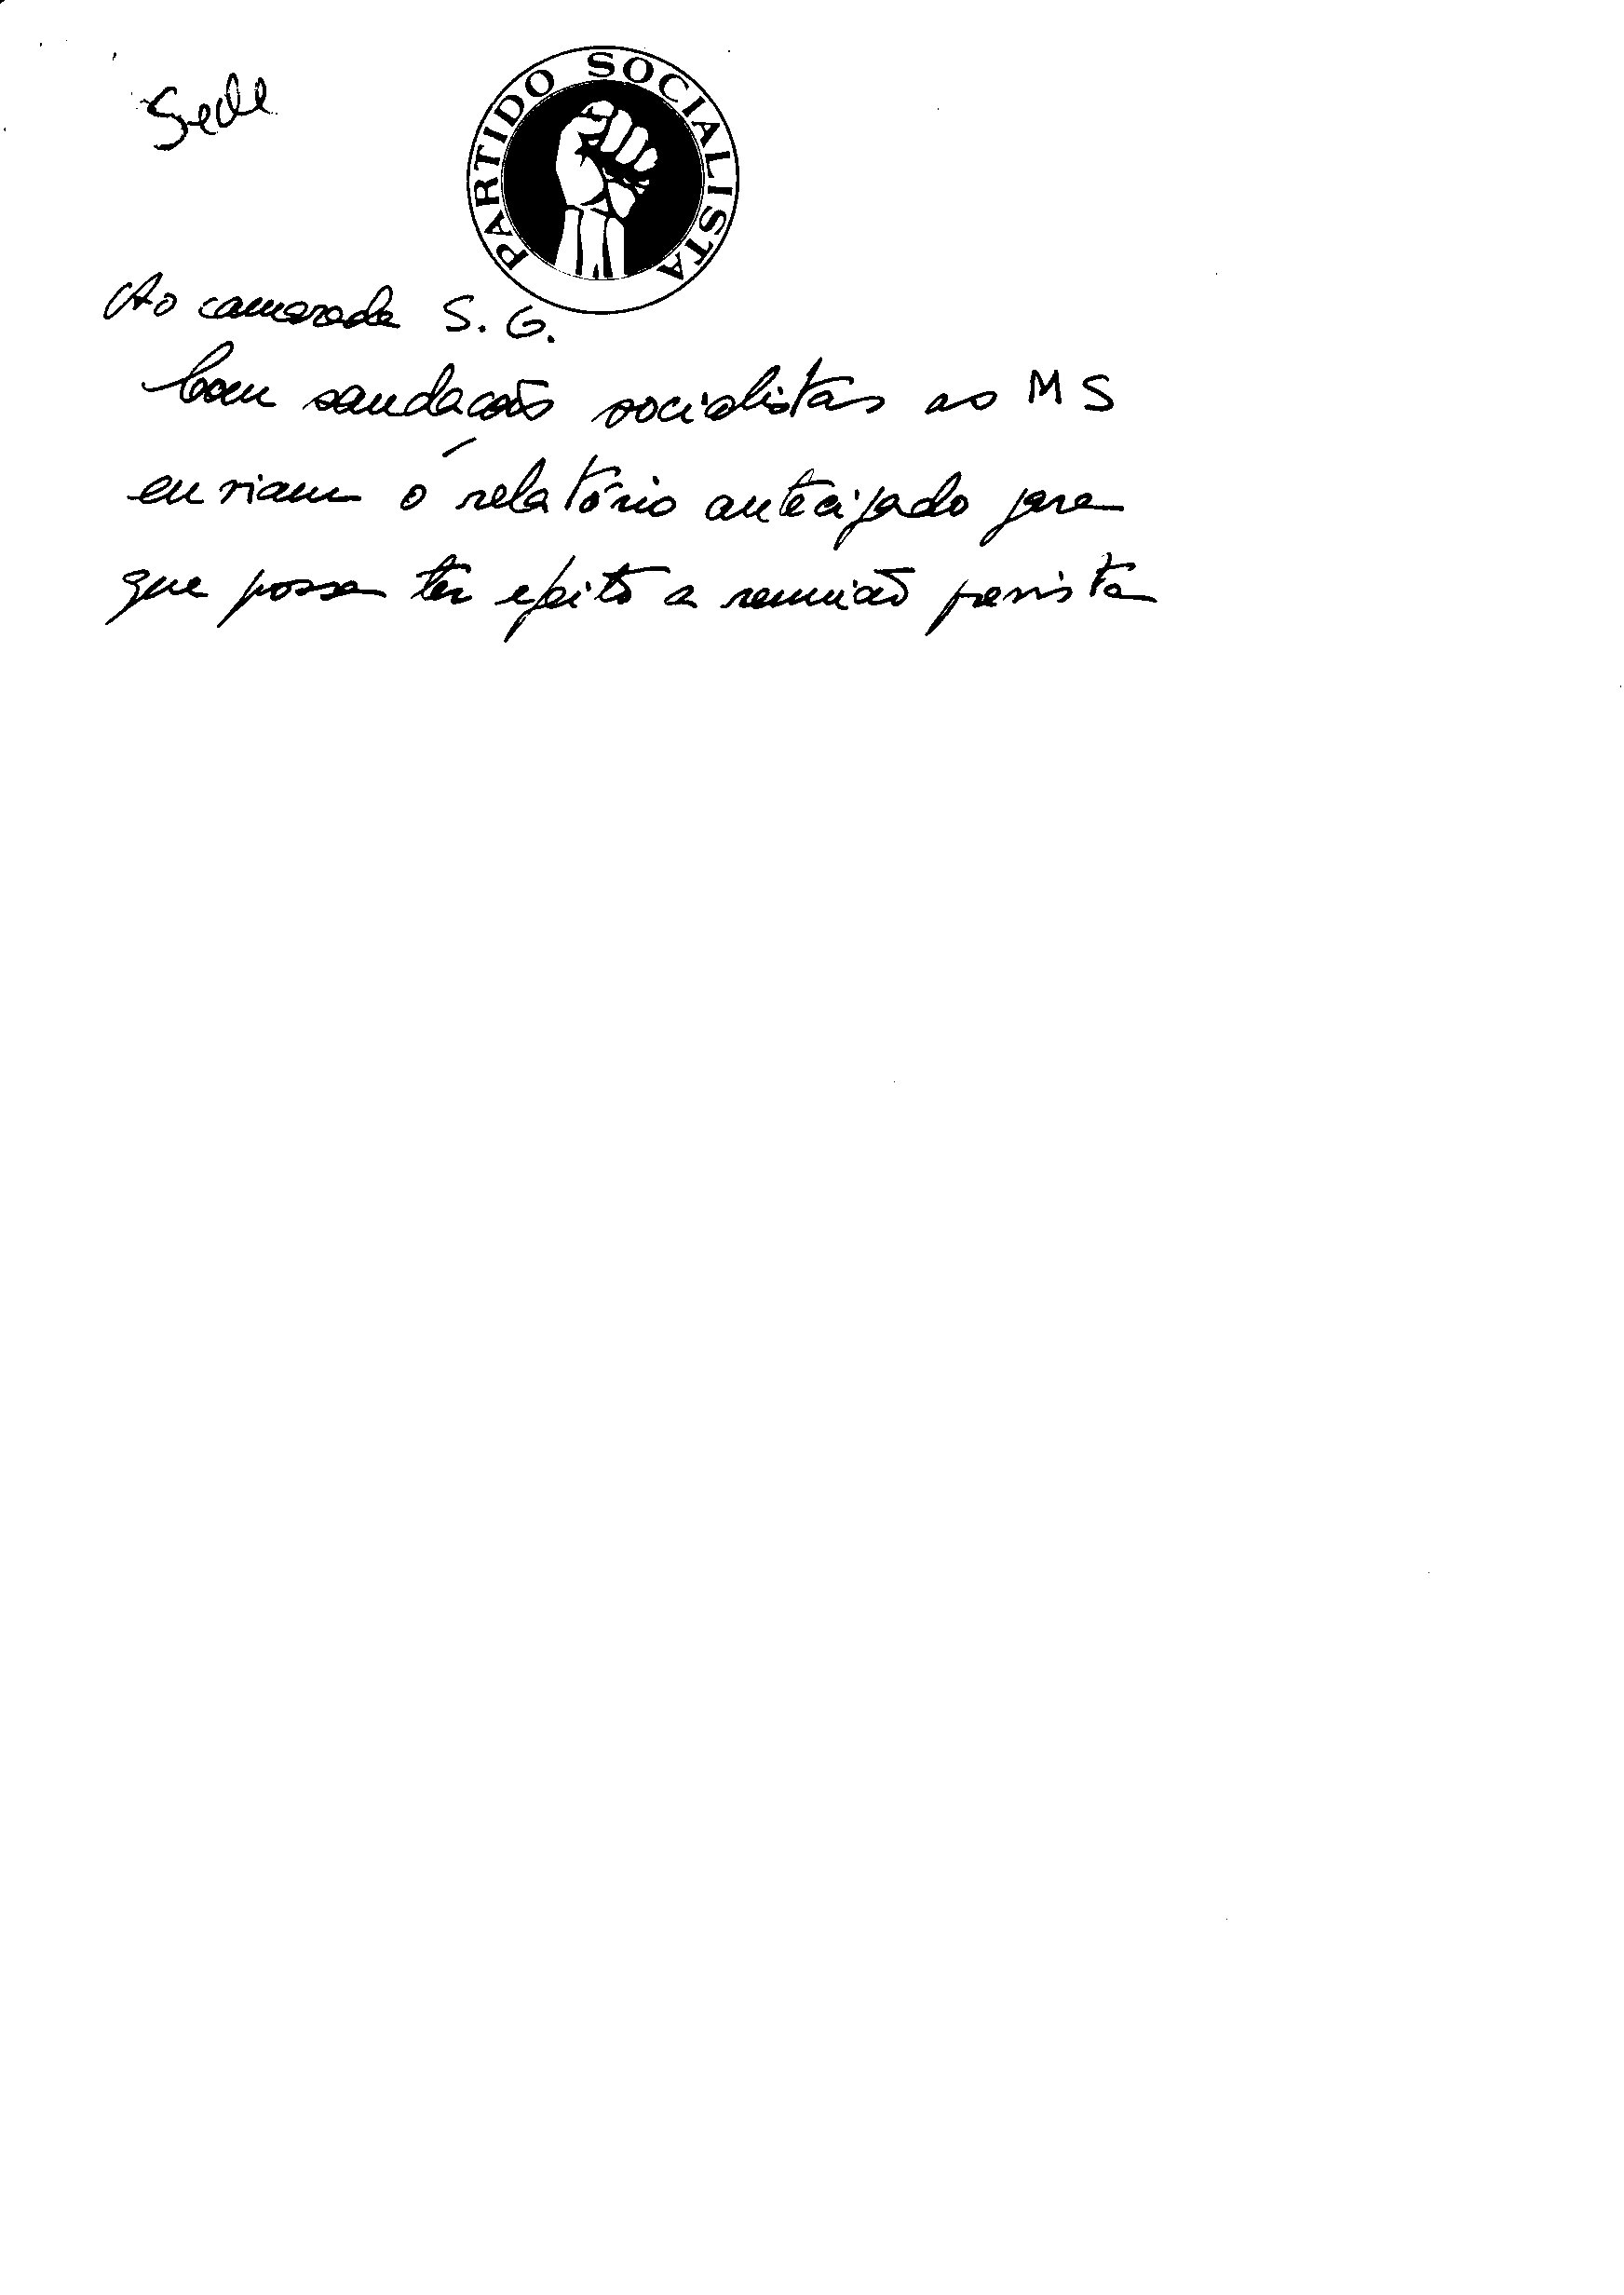 Sede
PARTIDO SOCIALISTA
Ao camarada S. G.
Com saudações socialistas ao MS
enviam o relatório antecipado para
que possa ter efeito a reunião prevista